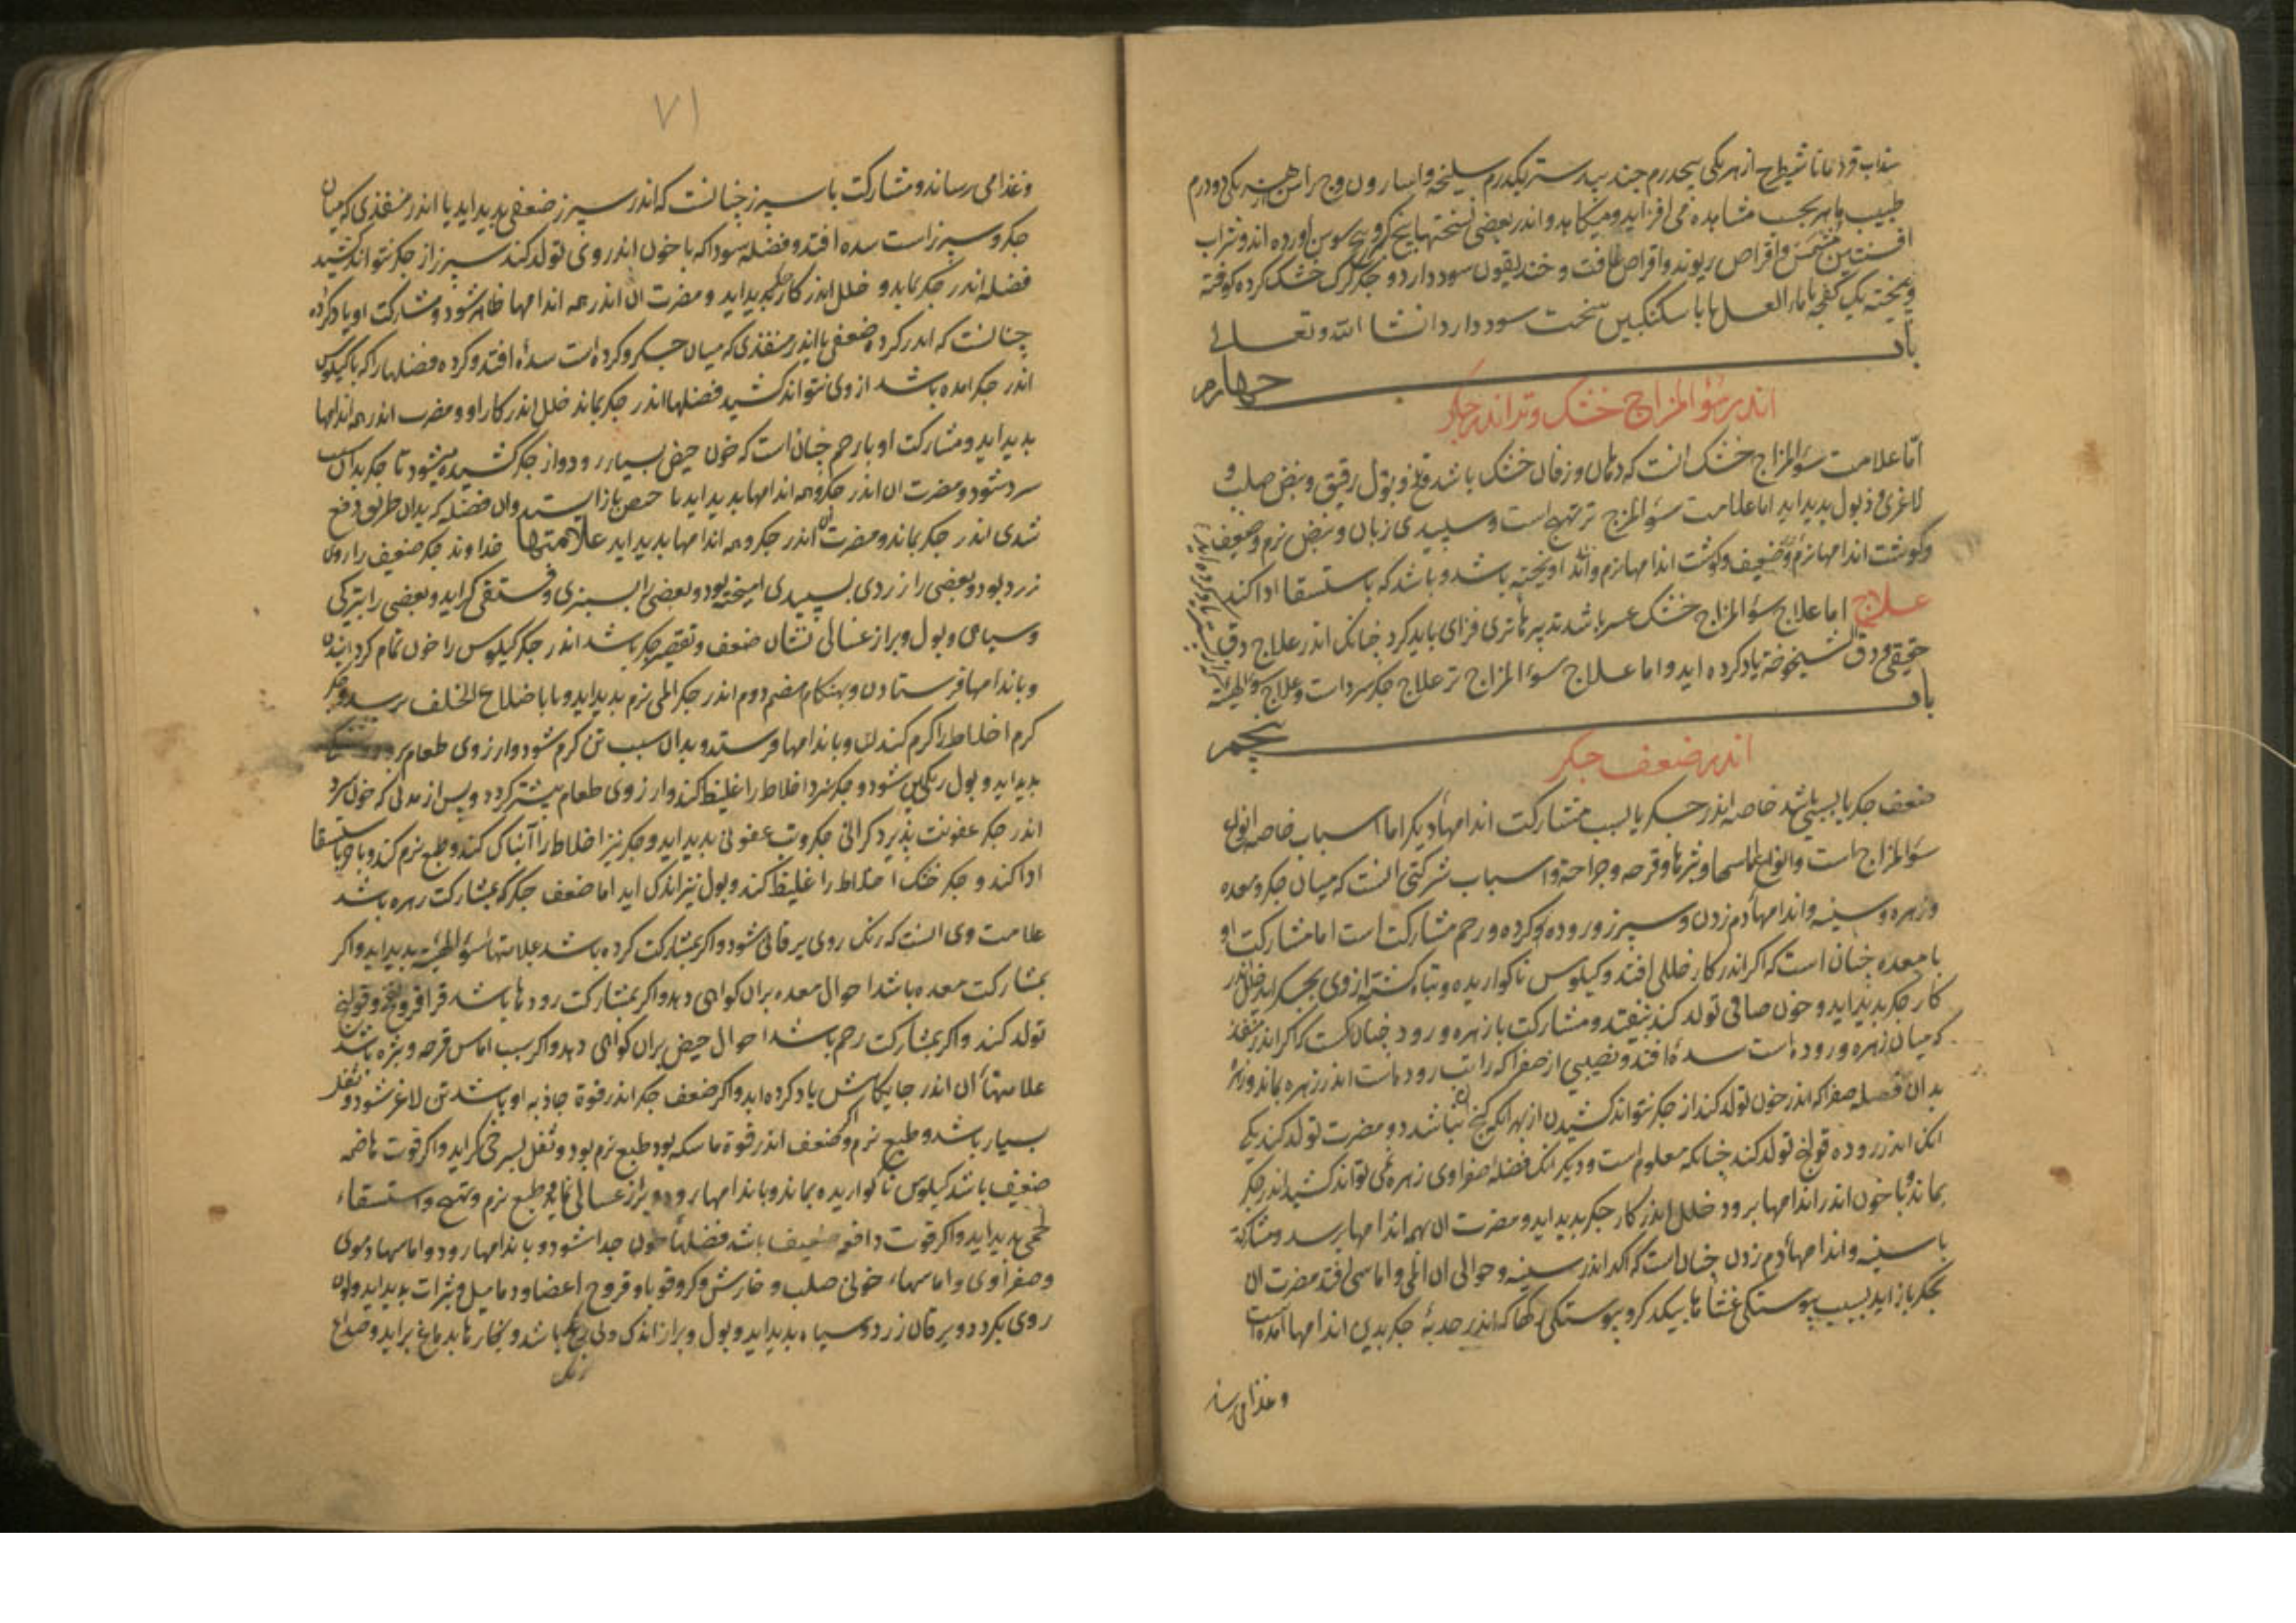 سذاب قردمانا شیطرج از هر یکی پنجدرم جند بیدستر یکدرم سلیخه و اسارون و وج را سن از هر یکی دو درم
طبیب ماهر بحسب مشاهده می افزاید و میکاهد و اندر بعضی نسختها بیخ کرفس و بیخ سوسن اورده اند و شراب
افسنتین و اقراص ریوند و اقراص غافت و خندیقون سود دارد و جگر گرک خشک کرده کوفته
و بیخته یک کفچه با ماء العسل یا با سکنکبین سخت سود دارد انشا الله و تعالی
باب چهارم
اندر سوٴ المزاج خشک و تر اندر جکر
امّا علامت سوٴ المزاج خشک انست که دهان و زفان خشک باشد و بول رقیق و نبض صلب و
لاغری و ذبول بدید اید اما علامت سوٴ المزاج تر تهبج است و سپیدی زبان و نبض نرم و ضعیف
و کوشت اندامها نرم و ضعیف و کوشت اندامها نرم و اویخته باشد و باشد که باستسقا ادا کند
علاج اما علاج سوٴ المزاج خشک عسر باشد تدبیرها تری فزای باید کرد چنانک اندر علاج دق
حقیقی و دق الشیخوخة یاد کرده اید و اما علاج سوٴ المزاج تر علاج جکر سرد است و علاج سوٴ القنیه
باب پنجم
اندر ضعف جکر
ضعف جکر یا بسببی باشد خاصه اندر جکر یا بسبب مشارکت اندامهاٴ دیکر اما اسباب خاصه انواع
سوٴ المزاج است و انواع اماسها و بثرها و قرحه و جراحة و اسباب شرکتی انست که میان جکر و معده
و زهره و سینه و اندامهاٴ دم زدن و سپرز و روده و کرده و رحم مشارکت است اما مشارکت او
با معده چنان است که اکر اندر کار خللی افتد و کیلوس ناکواریده و تباه کشته از وی بجکر اید خلل اندر
کار جکر بدید اید و خون صافی تولد کند نیفتد و مشارکت با زهره و رود چنان است که اکر اندر منفذ
که میان زهره و رودهاست سدهٴ افتد و نصیبی از صفرا که راتب رودهاست اندر زهره بماند و زهره
بدان فضله صفرا که اندر خون تولد کند از جکر نتواند کشیدن از بهر انک کنج نباشد دو مضرت تولد کند یکی
انک اندر روده قولنج تولد کند چنانکه معلوم است و دیکر انک فضلهٴ صفراوی زهره نمی تواند کشید اندر جکر
بماند و با خون اندر اندامها برود خلل اندر کار جکر بدید اید و مضرت ان بهمه اندامها برسد و مشارکة
با سینه و اندامهاٴ دم زدن چنان است که اکر اندر سینه و حوالی ان المی و اماسی افتد مضرت ان
بجکر باز اید بسبب پیوستکی غشاٴها بیکدکر و پیوستکی رکها که اندر حدبهٴ جکر بدین اندامها امده است
و غذا می رساند
۷۱
و غذا می رساند و مشارکت با سپرز چنانست که اندر سپرز ضعفی بدید اید یا اندر منفذی که میان
جکر و سپرز است سده افتد و فضله سودا که با خون اندر وی تولد کند سپرز از جکر نتواند کشید
فضله اندر جکر بماند و خلل اندر کار جکر بدید اید و مضرت ان اندر همه اندامها ظاهر شود و مشارکت او با کرده
چنانست که اندر کرده ضعفی یا اندر منفذی که میان جکر و کرده است سدهٴ افتد و کرده فضلها را که با کیلوس
اندر جکر امده باشد از وی نتواند کشید فضلها اندر جکر بماند خلل اندر کار او و مضرت اندر همه اندامها
بدید اید و مشارکت او با رحم چنان است که خون حیض بسیار رود و از جکر کشیده میشود تا جکر بدان سبب
سرد شود و مضرت ان اندر جکر و همه اندامها بدید اید یا حیض باز ایستد و ان فضله که بدان طریق دفع
شدی اندر جکر بماند و مضرت ان اندر جکر و همه اندامها بدید اید علامتها خداوند جکر ضعیف را روی
زرد بود و بعضی را زردی بسپیدی امیخته بود و بعضی را بسبزی و فستقی کراید و بعضی را بتیرکی
و سیاهی و بول و براز غسالی نشان ضعف و تقصیر جکر باشد اندر جکر کیلوس را خون تمام کردانیدن
و باندامها فرستادن و بهنکام هضم دوم اندر جکر المی نرم بدید اید و باضلاع الخلف برسد و جکر
کرم اخلاط را کرم کند و باندامها فرستد و بدان سبب تن کرم شود و ارزوی طعام
بدید اید و بول رنکین شود و جکر سرد اخلاط را غلیظ کند و ارزوی طعام بیشتر کردد و پس از مدتی که خون سرد
اندر جکر عفونت پذیرد کرانی جکر و تب عفونی بدید اید و جکر تر اخلاط را آبناک کند و طبع نرم کند و باخر باستسقا
ادا کند و جکر خشک اخلاط را غلیظ کند و بول نیز اندک اید اما ضعف جکر که بمشارکت زهره باشد
علامت وی انست که رنک روی یرقانی شود و اکر بمشارکت کرده باشد علامتهاٴ سوٴ القنیه بدید اید و اکر
بمشارکت معده باشد احوال معده بران کواهی دهد و اکر بمشارکت رودها باشد قراقر و نفخ و قولنج
تولد کند و اکر بمشارکت رحم باشد احوال حیض بران کواهی دهد و اکر بسبب اماس و قرحه و بثره باشد
علامتهاٴ ان اندر جایکاهش یاد کرده اید و اکر ضعف جکر اندر قوة جاذبه او باشد تن لاغر شود و ثفل
بسیار باشد و طبع نرم و اکر ضعف اندر قوة ماسکه بود طبع نرم بود و ثفل بسرخی کراید و اکر قوت هاضمه
ضعیف باشد کیلوس ناکواریده بماند و باندامها رود و براز غسالی نماید و طبع نرم و تهبج و استسقاء
لحمی بدید اید و اکر قوت دافعه ضعیف باشد فضلهاٴ خون جدا نشود و باندامها رود و اماسهاٴ دموی
و صفراوی و اماسهاء خونی صلب و خارش و کر و قوبا و قروح اعضا و دمامیل و بثرات بدید اید و لون
روی بکردد و یرقان زرد و سیاه بدید اید و بول و براز اندک و بی رنک باشد و بخارها بدماغ براید و صداع
رنک